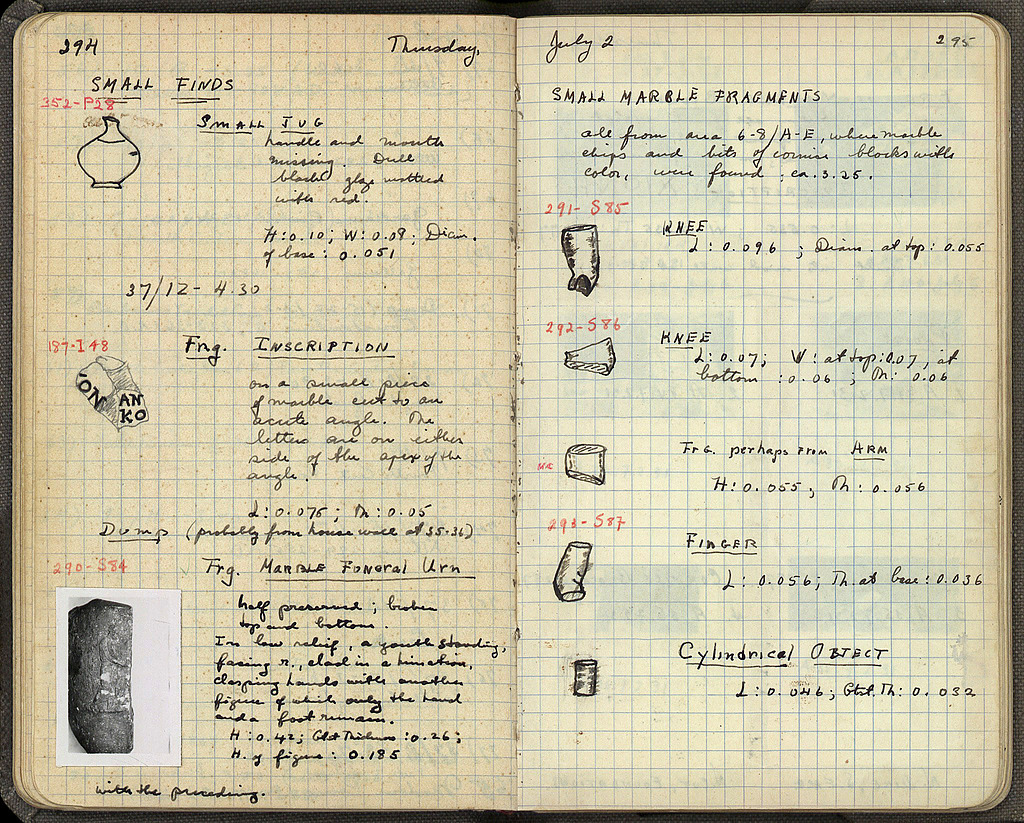 294
Thursday,
SMALL FINDS
352-P28
SMALL JUG
handle and mouth
missing. Dull
black glaze mottled
with red.
H: 0.10; W: 0.09; Diam.
of base: 0.051
37/12 - 4.30
187-I48
Frg. INSCRIPTION
on a small piece
of marble cut to an
acute angle. The
letters are on either
side of the apex of the
angle.
ON
AN
KO
L: 0.075; Th: 0.05
Dump (probably from house wall at 35-36)
290-S84
Frg. MARBLE FUNERAL URN
half preserved; broken
top and bottom.
In low relief, a youth standing,
facing r., clad in a himation,
clasping hands with another
figure of which only the hand
and a foot remain.
H: 0.42; Gtst Thickness: 0.26;
H. of figure: 0.185
with the preceding.
July 2
295
SMALL MARBLE FRAGMENTS
all from area 6-8/A-E, where marble
chips and bits of cornice blocks with
color, were found; ca. 3.25.
291-S85
KNEE
L: 0.096; Diam. at top: 0.055
292-S86
KNEE
L: 0.07; W: at top: 0.07, at
bottom: 0.06; Th: 0.06
Frg. perhaps from ARM
H: 0.055; Th: 0.056
293-S87
FINGER
L: 0.056; Th. at base: 0.036
Cylindrical OBJECT
L: 0.046; Gtst. Th: 0.032